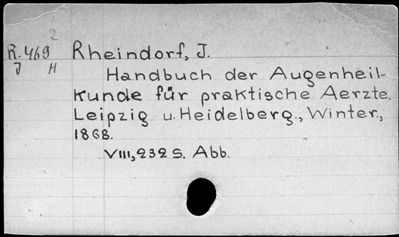 2
R. 469 Rheindorf, J.
J H Handbuch der Augenheil-
kunde für praktische Aerzte.
Leipzig u. Heidelberg., Winter,
1868.
VIII, 232 S. Abb.